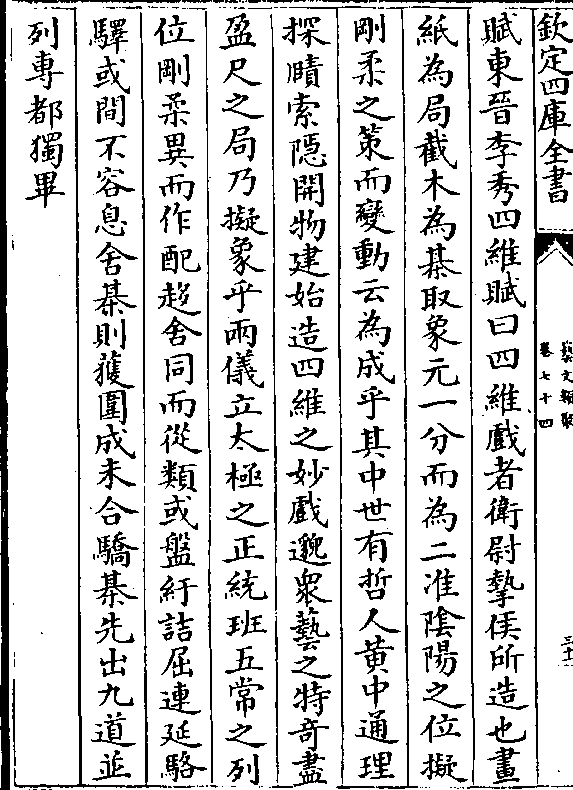 欽定四庫全書
藝文類聚
卷七十四
賦東晉李秀四維賦曰四維戲者衛尉摯侯所造也畫
紙為局截木為棊取象元一分而為二准陰陽之位擬
剛柔之策而變動云為成乎其中世有哲人黄中通理
探賾索隠開物建始造四維之妙戲邈衆藝之特奇盡
盈尺之局乃擬象乎兩儀立太極之正統班五常之列
位剛柔異而作配趍舍同而從類或盤紆詰屈連延駱
驛或間不容息舍棊則獲圍成未合驕棊先出九道並
列専都獨畢